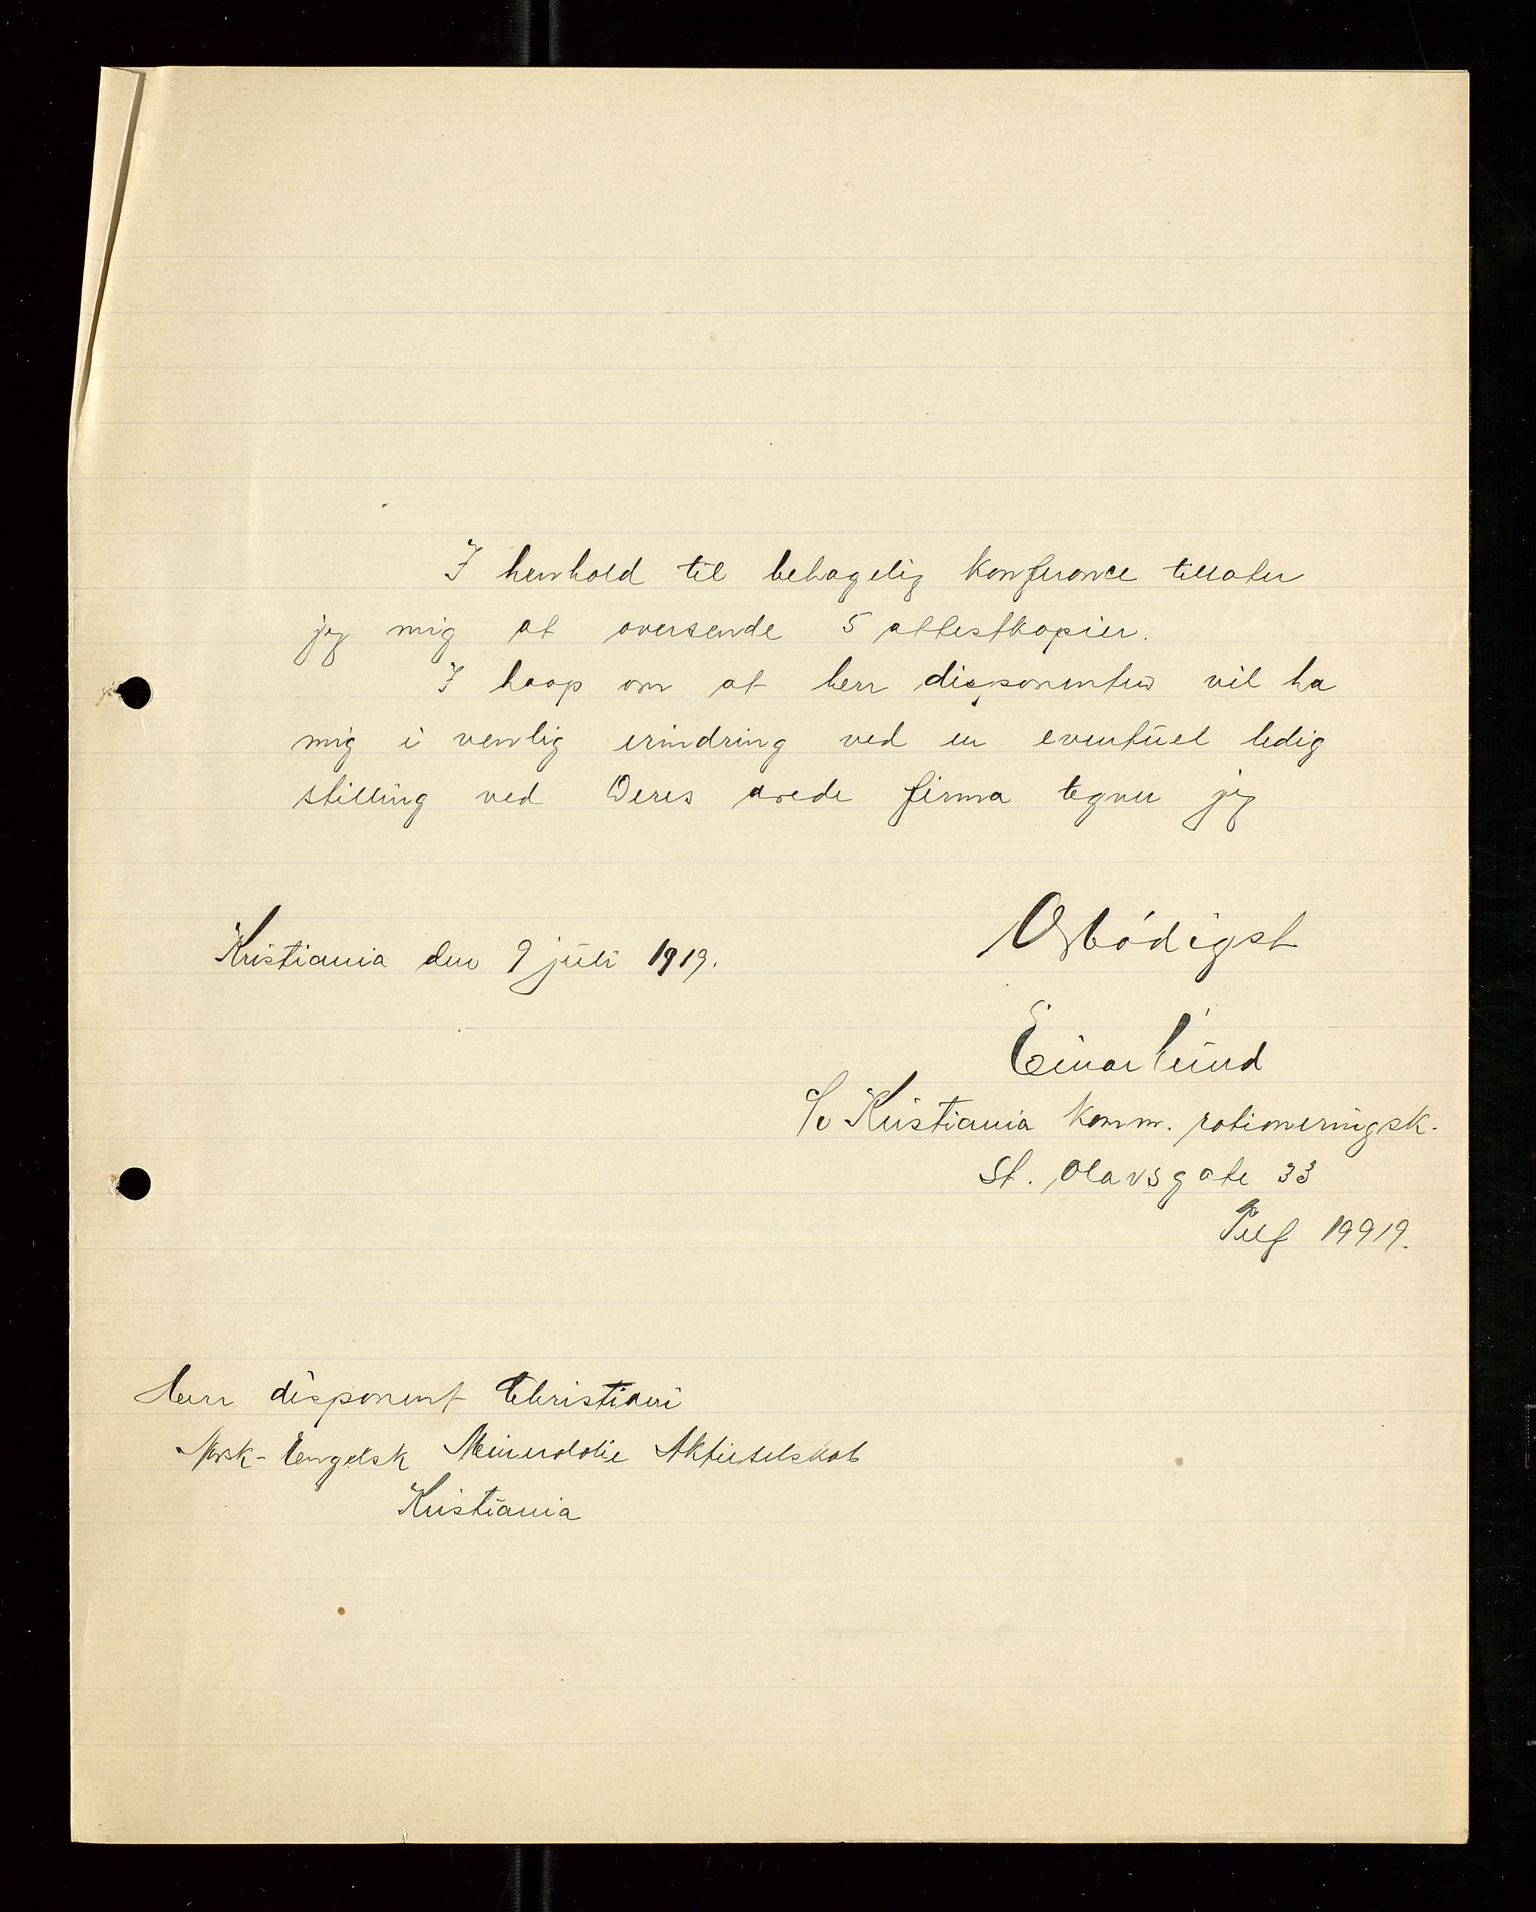 I henhold til behagelig konferance tillater
jeg mig at oversende 5 attestkopier.
I haap om at herr disponenten vil ha
mig i venlig erindring ved en eventuel ledig
stilling ved Deres ærede firma tegner jeg
Ærbødigst
Kristiania den 9 juli 1919.
Einar Lund
c/o Kristiania komm. rationeringsk.
St. Olavsgate 33
Telf 19919.
Herr disponent Christian
Norsk-Engelsk Mineralolie Aktieselskab
Kristiania